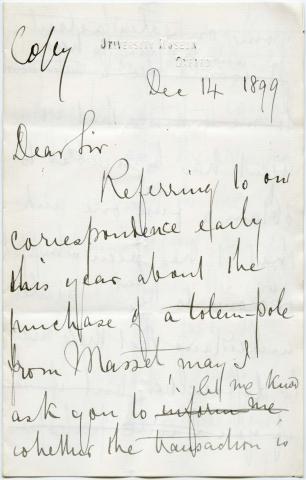 Copy
UNIVERSITY MUSEUM
OXFORD
Dec 14 1899
Dear Sir
Referring to our
correspondence early
this year about the
purchase of a totem-pole
from Masset may I
let me know
ask you to inform me
whether the transaction is